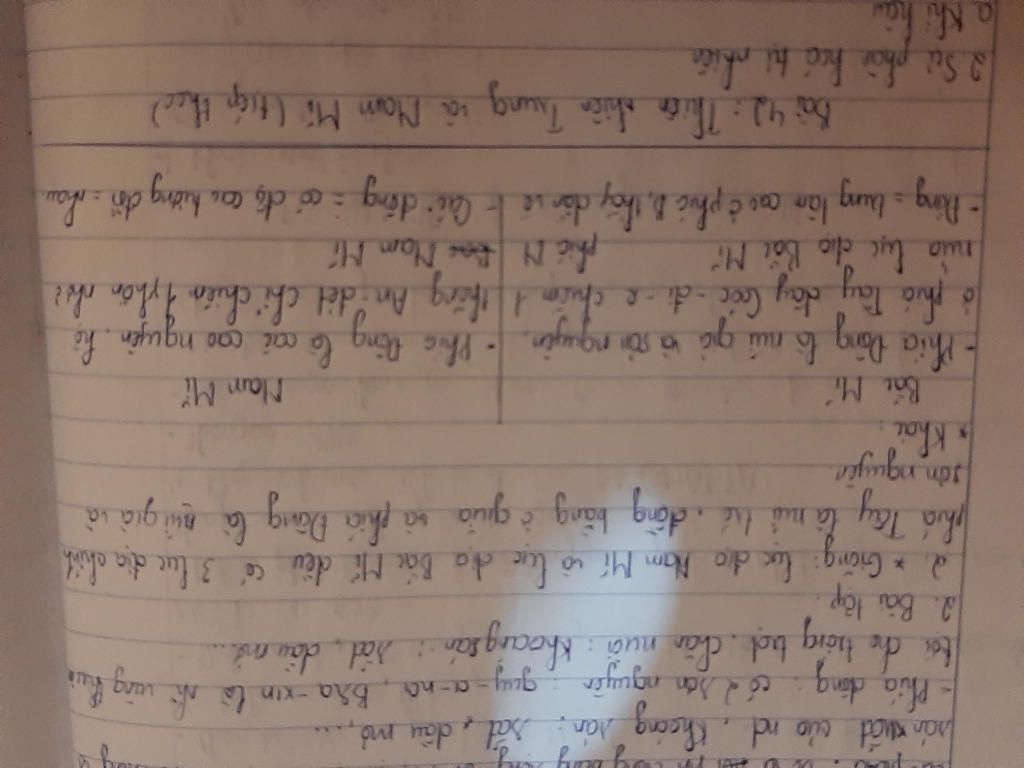 sản xuất của nd, khoáng sản: sắt, dầu mỏ, ...
- Phía đông: có 2 sơn nguyên: guy-a-na, Bra-xin là những vùng thuận
lợi cho trồng trọt, chăn nuôi; khoáng sản: sắt, dầu mỏ...
2. Bài tập.
2. * Giống: lục địa Nam Mĩ và lục địa Bắc Mĩ đều có 3 lục địa chính
phía Tây là núi trẻ, đồng bằng ở giữa và phía Đông là núi già và
sơn nguyên
* Khác:
Bắc Mĩ
- Phía Đông là núi già và sơn nguyên.
ở phía Tây dãy Cooc-di-e chiếm 1
nửa lục địa Bắc Mĩ
- Đồng = trung tâm cao ở phía B, thấp dần về
phía N
Nam Mĩ
- Phía Đông là các cao nguyên, hệ
thống An-dét chỉ chiếm 1 phần nhỏ ở
Nam Mĩ
- Các đồng = có độ cao tương đối = nhau
Bài 42: Thiên nhiên Trung và Nam Mĩ (tiếp theo)
2. Sự phân hoá tự nhiên
a. Khí hậu